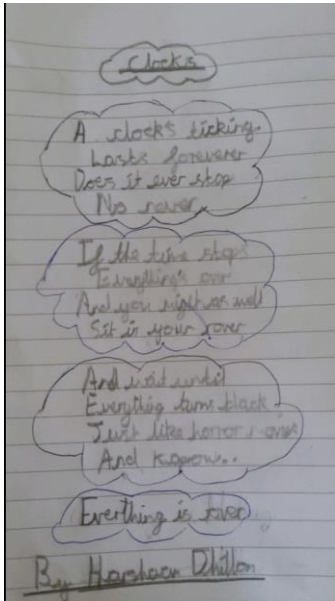 Clocks
A clocks ticking
Lasts foreverer
Does it ever stop
No never
If the time stops
Everything's over
And you might as well
Sit in your rover
And wait until
Everything turns black
Just like horror movies
And kapow..
Everthing is over
By Harshaan Dhillon